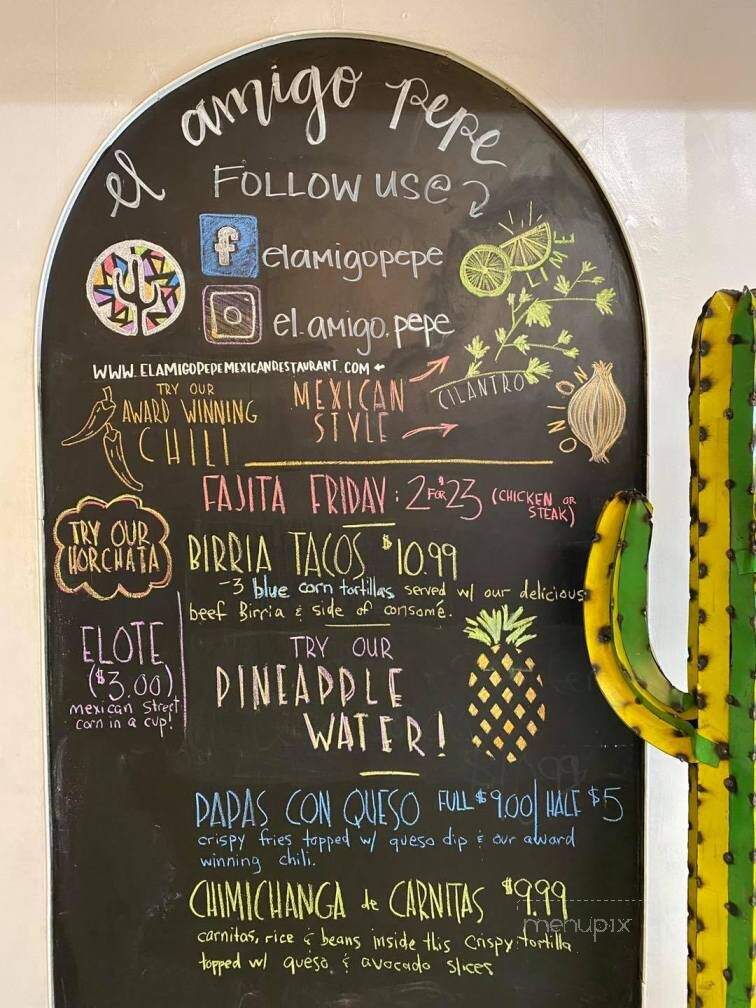 el amigo pepe
FOLLOW US@
f elamigopepe
el.amigo.pepe
LIME
WWW.ELAMIGOPEPEMEXICANRESTAURANT.COM
TRY OUR
AWARD WINNING
CHILI
MEXICAN
STYLE
CILANTRO
ONION
FAJITA FRIDAY: 2 FOR $23 (CHICKEN OR
STEAK)
TRY OUR
HORCHATA
BIRRIA TACOS $10.99
-3 blue corn tortillas served w/ our delicious
beef Birria & side of consomé.
ELOTE
($3.00)
mexican street
corn in a cup!
TRY OUR
PINEAPPLE
WATER!
PAPAS CON QUESO FULL $9.00| HALF $5
crispy fries topped w/ queso dip & our award
winning chili.
CHIMICHANGA de CARNITAS $9.99
carnitas, rice & beans inside this crispy tortilla
topped w/ queso & avocado slices
menupix